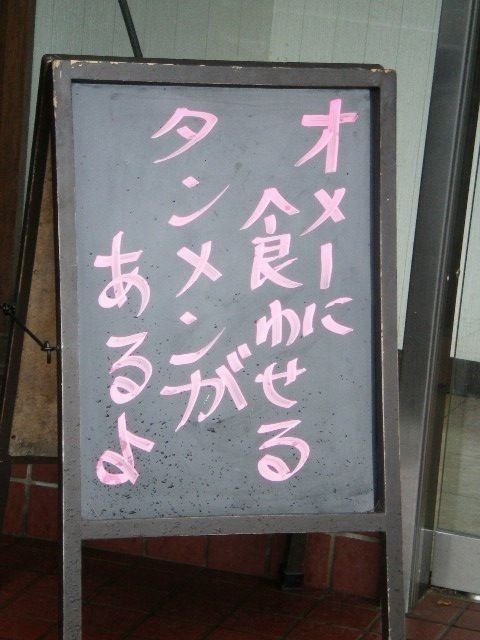 オメーに
食わせる
タンメンが
あるよ